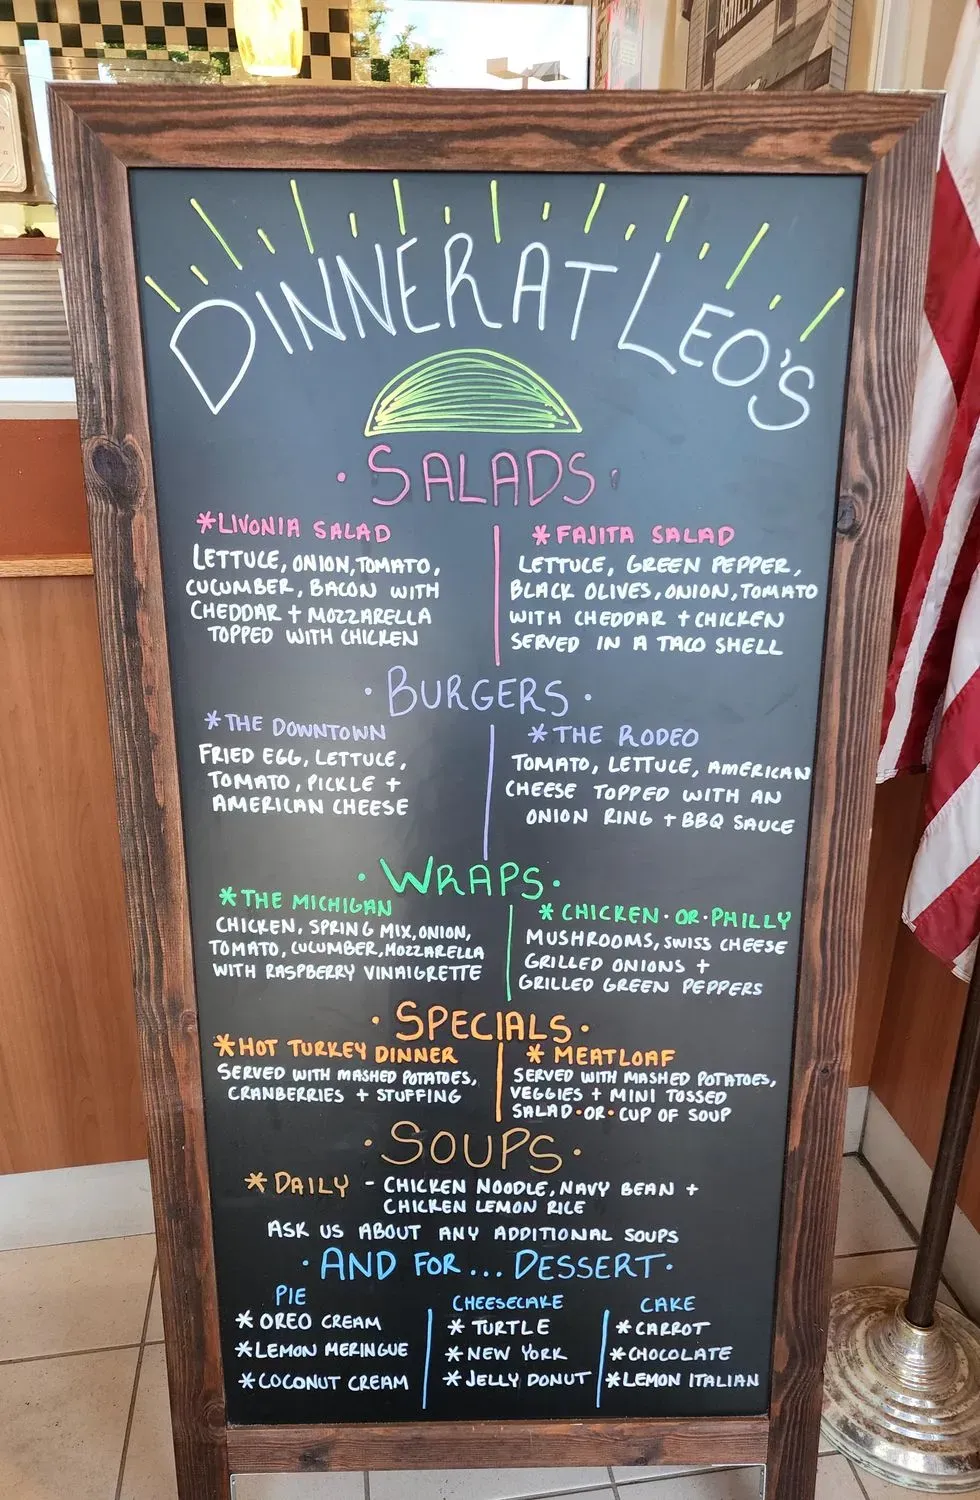 DINNER AT LEO'S
·SALADS·
*LIVONIA SALAD
LETTUCE, ONION, TOMATO,
CUCUMBER, BACON WITH
CHEDDAR + MOZZARELLA
TOPPED WITH CHICKEN
*FAJITA SALAD
LETTUCE, GREEN PEPPER,
BLACK OLIVES, ONION, TOMATO
WITH CHEDDAR + CHICKEN
SERVED IN A TACO SHELL
·BURGERS·
*THE DOWNTOWN
FRIED EGG, LETTUCE,
TOMATO, PICKLE +
AMERICAN CHEESE
*THE RODEO
TOMATO, LETTUCE, AMERICAN
CHEESE TOPPED WITH AN
ONION RING + BBQ SAUCE
·WRAPS·
*THE MICHIGAN
CHICKEN, SPRING MIX, ONION,
TOMATO, CUCUMBER, MOZZARELLA
WITH RASPBERRY VINAIGRETTE
*CHICKEN·OR·PHILLY
MUSHROOMS, SWISS CHEESE
GRILLED ONIONS +
GRILLED GREEN PEPPERS
·SPECIALS·
*HOT TURKEY DINNER
SERVED WITH MASHED POTATOES,
CRANBERRIES + STUFFING
*MEATLOAF
SERVED WITH MASHED POTATOES,
VEGGIES + MINI TOSSED
SALAD·OR·CUP OF SOUP
·SOUPS·
*DAILY - CHICKEN NOODLE, NAVY BEAN +
CHICKEN LEMON RICE
ASK US ABOUT ANY ADDITIONAL SOUPS
·AND FOR... DESSERT·
PIE
*OREO CREAM
*LEMON MERINGUE
*COCONUT CREAM
CHEESECAKE
*TURTLE
*NEW YORK
*JELLY DONUT
CAKE
*CARROT
*CHOCOLATE
*LEMON ITALIAN